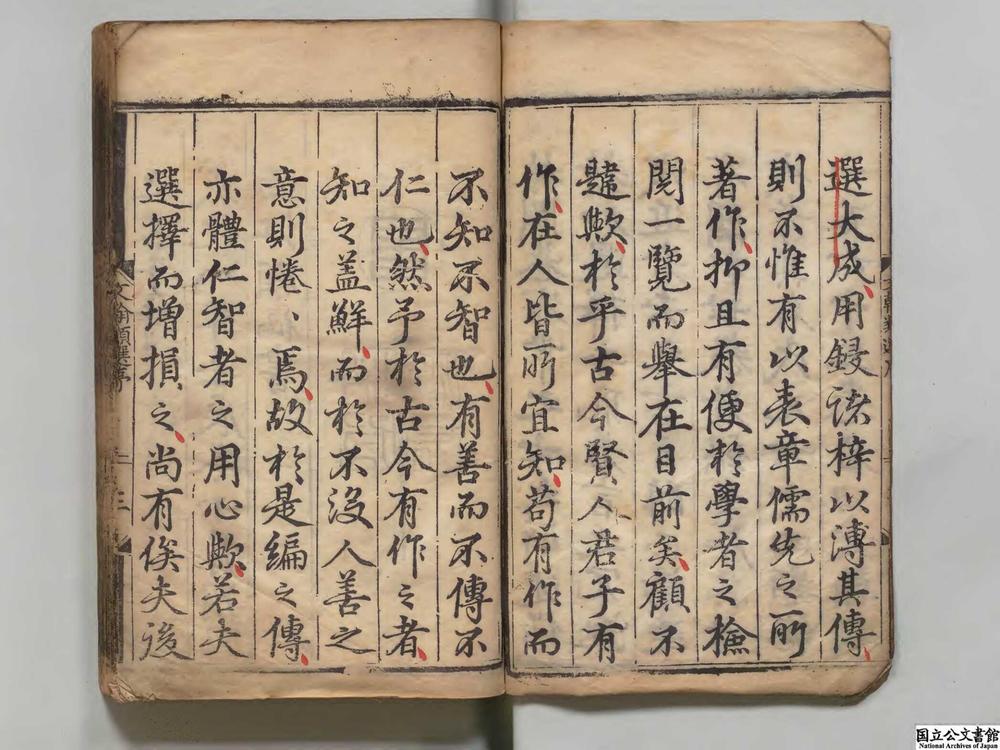 選大成用鋟諸梓以溥其傳
則不惟有以表章儒先之所
著作抑且有便於學者之檢
閱一覽而舉在目前矣顧不
韙歟於乎古今賢人君子有
作在人皆所宜知苟有作而
不知不智也有善而不傳不
仁也然予於古今有作之者
知之盖鮮而於不沒人善之
意則惓、焉故於是編之傳
亦體仁智者之用心歟若夫
選擇而增損之尚有俟夫後
文翰類選序
国立公文書館
National Archives of Japan